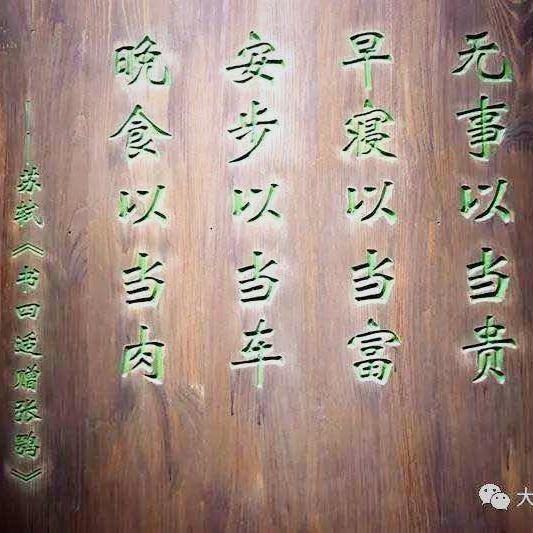 无事以当贵
早寝以当富
安步以当车
晚食以当肉
——苏轼《书四适赠张鹗》
大